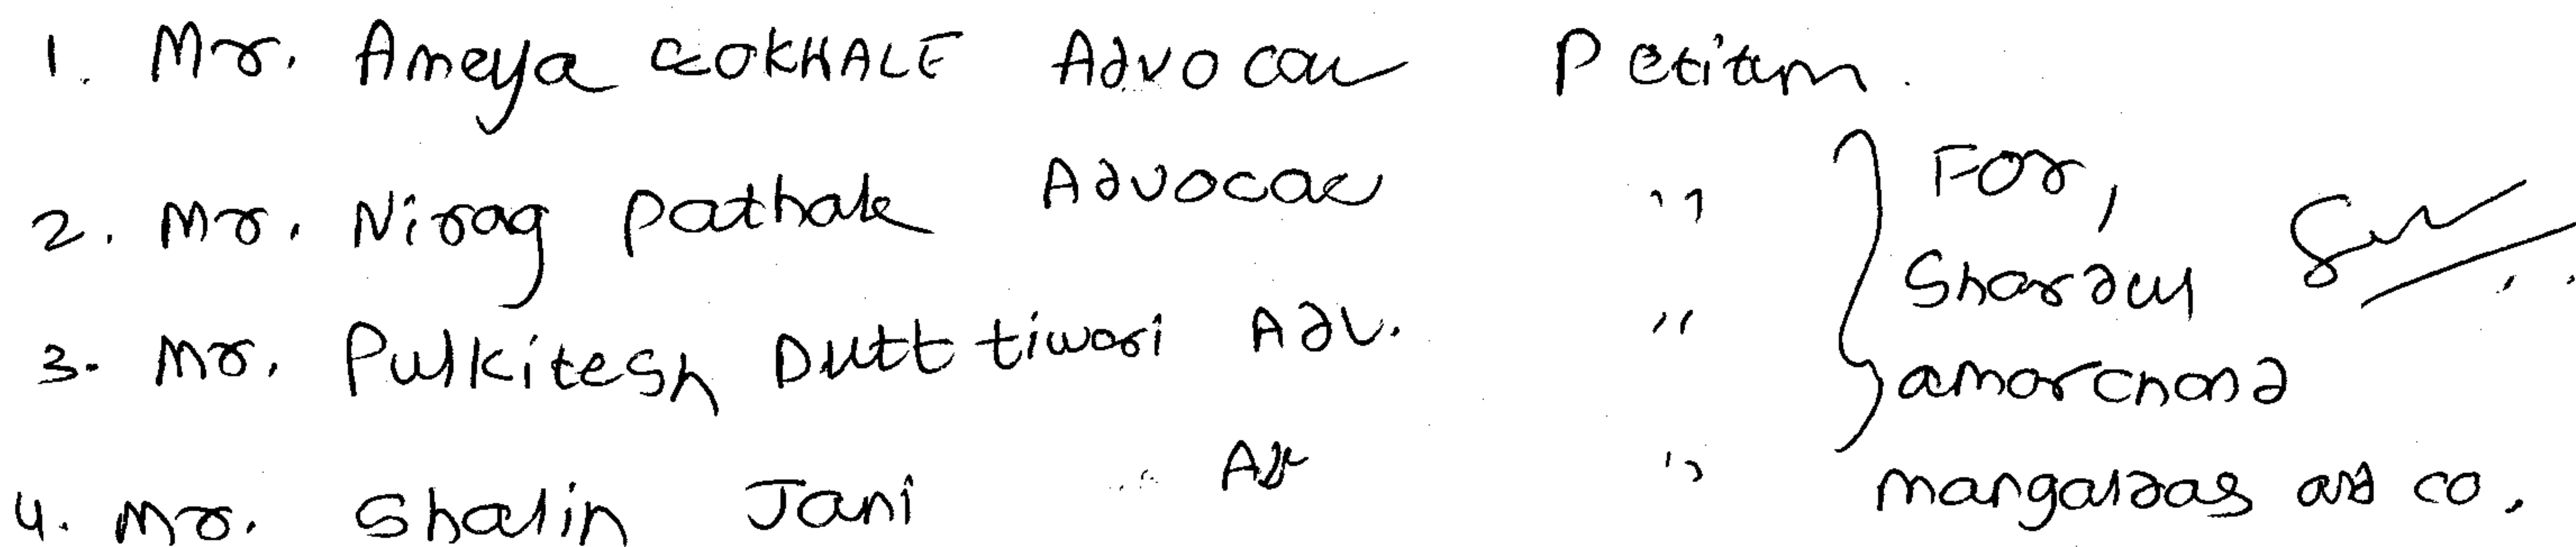 1. Mr. Ameya GOKHALE Advocate Petition.
2. Mr. Nirag Pathak Advocate "
3. Mr. Pulkitesh Dutt tiwari Adv. "
4. Mr. Shalin Jani Adv "
For,
Shardul
amarchand
mangaldas and co.